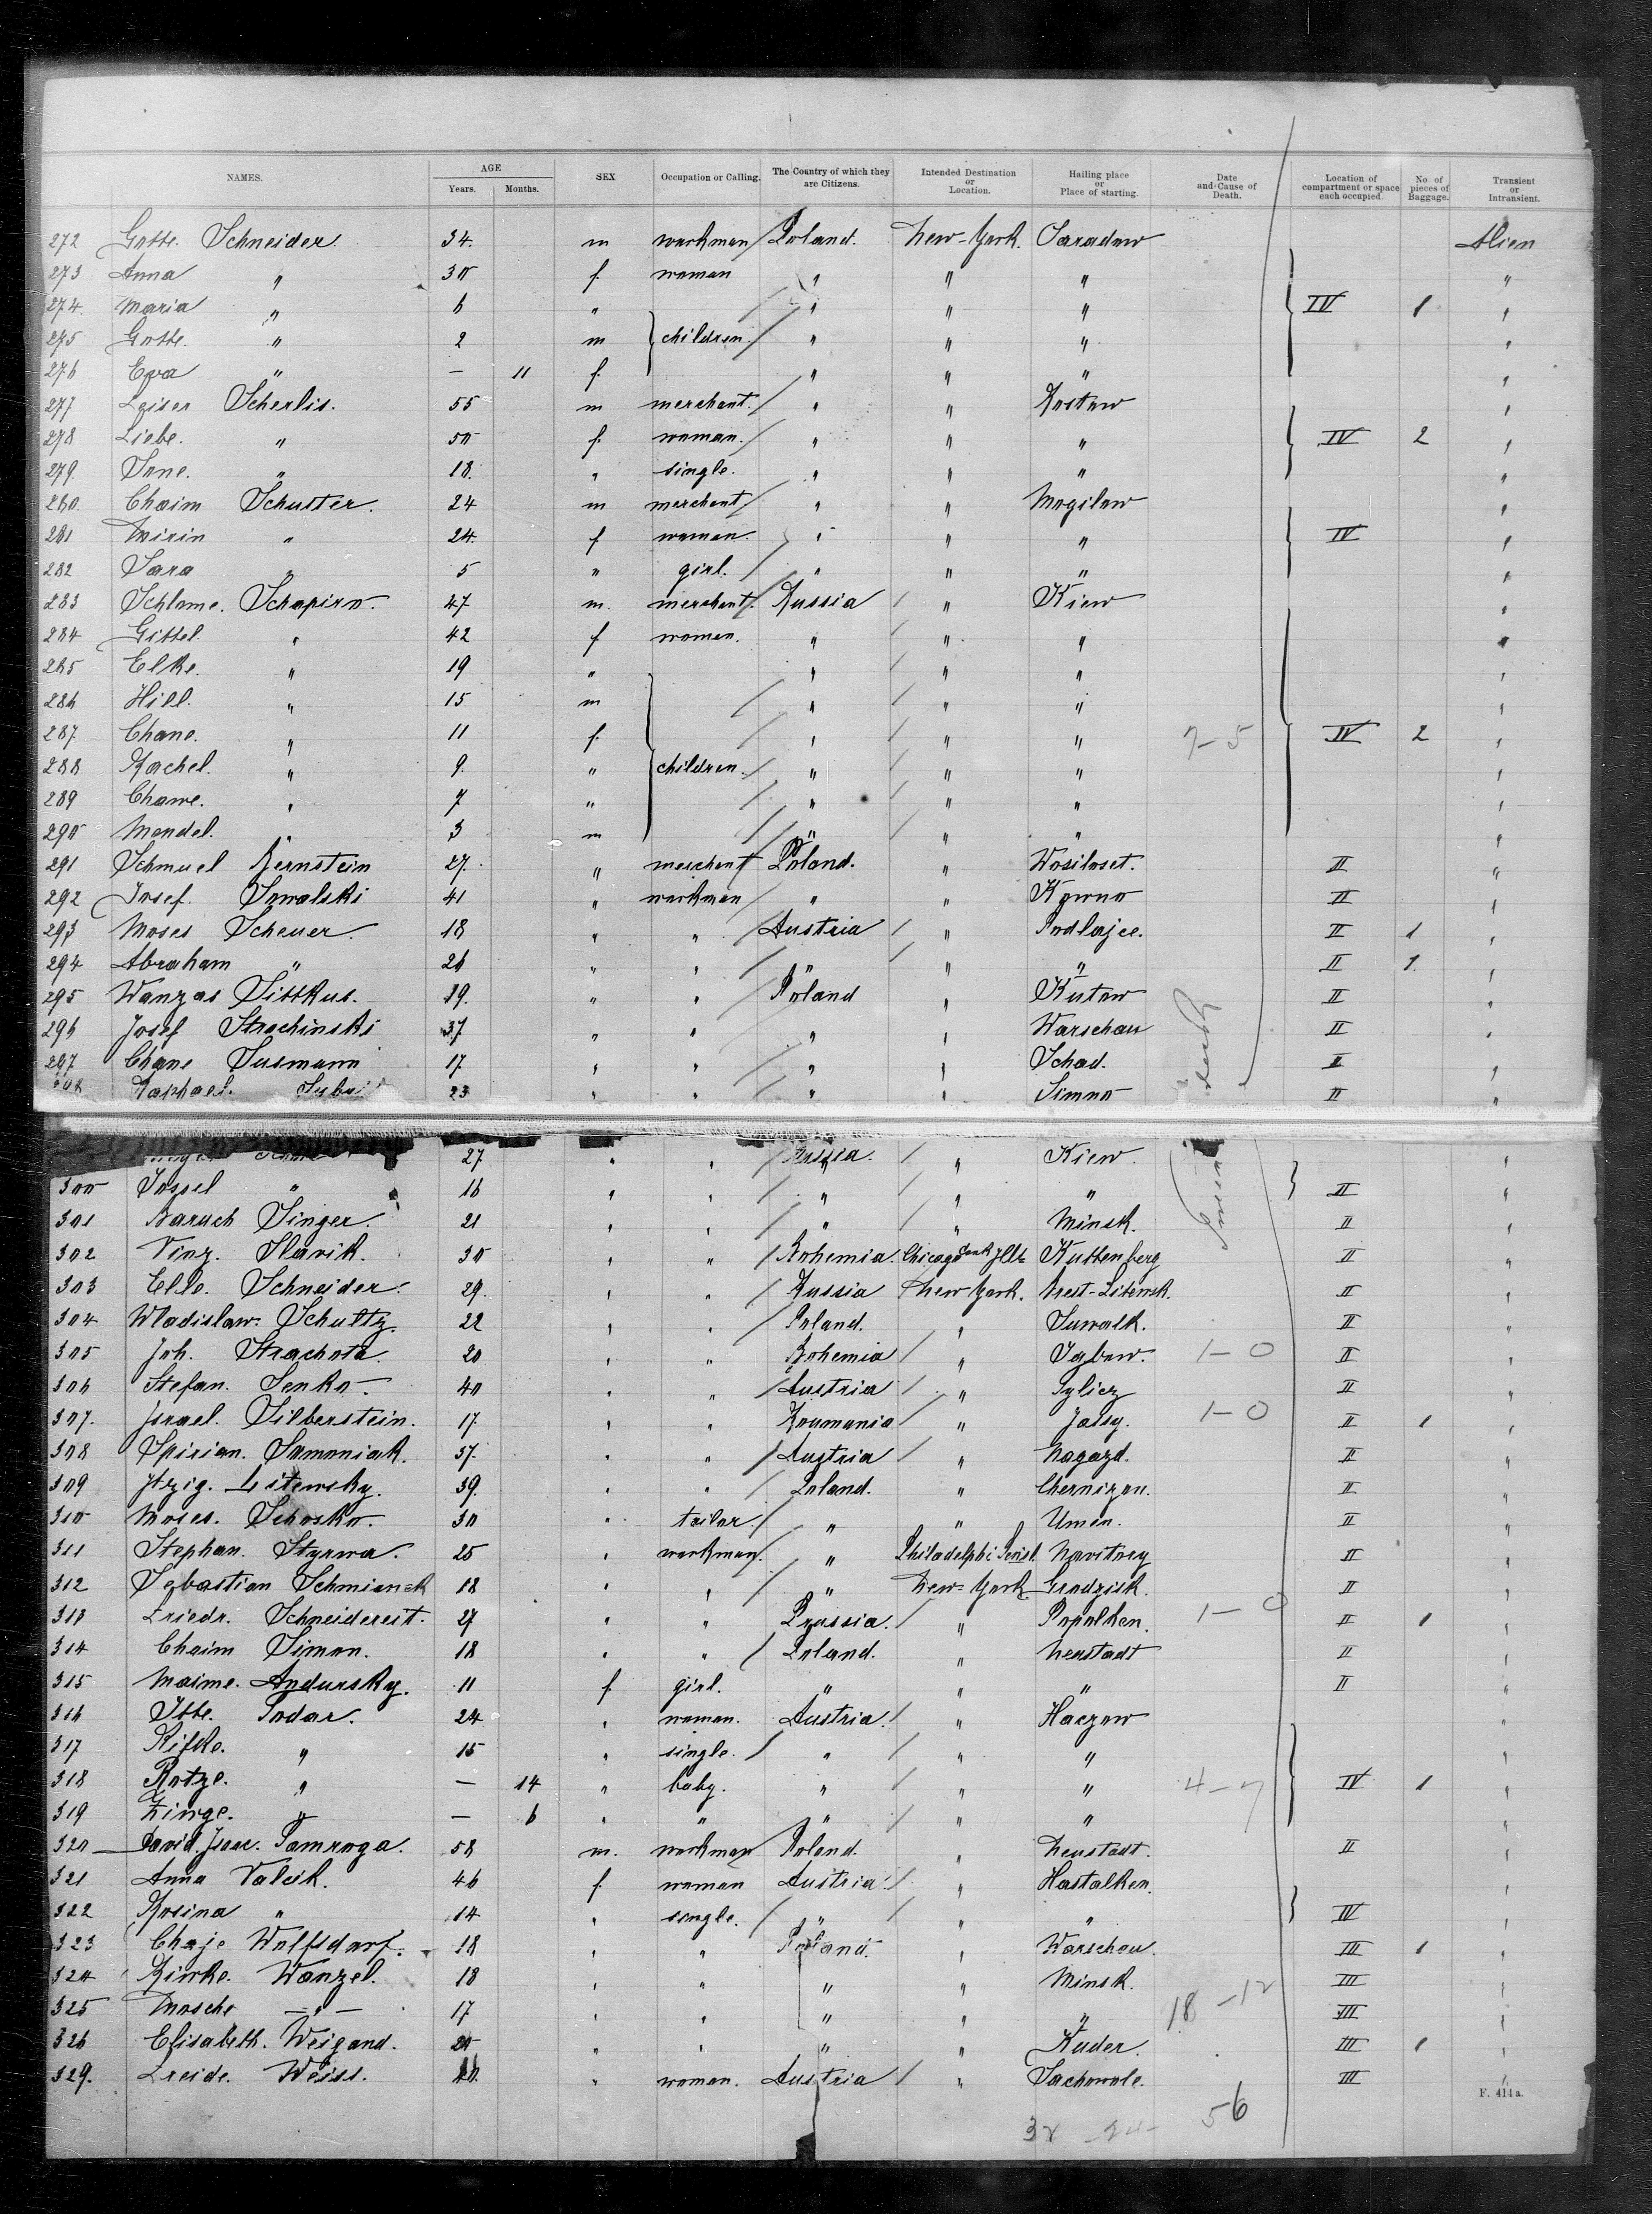 NAMES. AGE Years. Months. SEX Occupation or Calling. The Country of which they are Citizens. Intended Destination or Location. Hailing place or Place of starting. Date and Cause of Death. Location of compartment or space each occupied. No. of pieces of Baggage. Transient or Intransient.
272 Gotte. Schneider. 34. m workman Poland. New-York. Saradow Alien
273 Anna " 30 f. woman " " " "
274. Maria " 6 " " " " IV 1 "
275 Gotte. " 2 m children. " " " "
276 Eva " — 11 f. " " " "
277 Leiser Scherlis. 55 m merchant. " " Rostow "
278 Liebe. " 50 f. woman. " " " IV 2 "
279. " 18. " single. " " " "
280. Chaim Schuster. 24 m merchant " " Mogilow "
281 Mirin " 24. f woman. " " " IV "
282 Sara " 5 " girl. " " " "
283 Schlome. Schapiro. 47 m. merchant. Russia " Kiew "
284 Gittel. " 42 f woman. " " " "
285 Elke. " 19 " " " " "
286 Hill. " 15 m " " " "
287 Chane. " 11 f. " " " 7-5 IV 2 "
288 Rachel. " 9. " children. " " " "
289 Chawe. " 7 " " " " "
290 Mendel. " 3 m " " " "
291 Schmuel Bernstein 27. " merchant Poland. " Wosiloset. II "
292 Josef. Sowalski 41 " workman " " Kowno II "
293 Moses Scheuer. 18 " " Austria " Podlajce. II 1 "
294 Abraham " 26 " " " " " II 1. "
295 Wanzas Sittkus. 39. " " Poland " Kutow II "
296 Josef Strachinski 37 " " " " Warschau II "
297 Chane Susmann 17 " " " " Schad. II "
Raphael. 23 " " " " Simno II "
27 " " Russia. " Kiew "
300 Jossel " 16 " " " " " II "
301 Baruch Singer. 21 " " " " Minsk. II "
302 Vinz. Slavik. 30 " " Bohemia. Chicago Kuttenberg II "
303 Elle. Schneider. 29. " " Russia New York. Brest-Litewsk. II "
304 Wladislaw. Schultz. 22 " " Poland. " Suwalk. II "
305 Joh. Strachota. 20 " " Bohemia " 1-0 II "
306 Stefan. Senko. 40 " " Austria " Sylicz II "
307. Israel. Silberstein. 17 " " Roumania " Jassy. 1-0 II 1 "
308 Spirian. Samoniak. 37. " " Austria " Nagazd. II "
309 Itzig. Litewsky. 39. " " Poland. " Chernizon. II "
310 Moses. Schosko. 30 " tailor " " Umen. II "
311 Stephan. Styrwa. 25 " workman. " Philadelphi Navitney II "
312 Sebastian 18 " " " New-York Grodzisk. II "
313 Friedr. Schneidereit. 27 " " Prussia. " Popolken. 1-0 II 1 "
314 Chaim Simon. 18 " " Poland. " Neustadt II "
315 Maime. Andursky. 11 f. girl. " " " II "
316 Itte. Todar. 24 " woman. Austria. " Haczow "
317 Rifke. " 15 " single. " " " "
318 Rotze. " — 14 " baby. " " " 4-7 IV 1 "
319 Zinge. " — 6 " " " " " "
320 David. Isaac. Tamroga. 58 m. workman Poland. " Neustadt. II "
321 Anna Valcik. 46 f woman Austria. " Hastalken. "
322 Rosina " 14 " single. " " " IV "
323 Chaje Wolfsdorf. 18 " " Poland. " Warschau. III 1 "
324 Rinke. Wanzel. 18 " " " " Minsk. III "
325 Mosche —"— 17 " " " " " 18-12 III "
326 Elisabeth. Weigand. 20 " " " " Kuder. III 1 "
329. Freide. Weiss. " woman. Austria " Sachowole. III "
F. 414a.
56